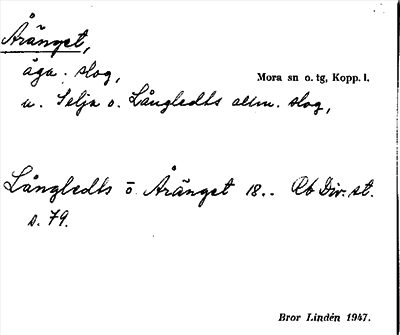 Åränget,
äga. slog, Mora sn o. tg, Kopp. l.
u. Selja o. Långledts allm. slog,
Långledts o Åränget 18.. Rb Div. st.
s. 79.
Bror Lindén 1947.